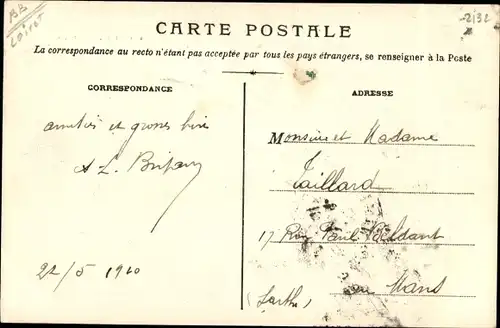 BB
Loiret
2132
CARTE POSTALE
La correspondance au recto n'étant pas acceptée par tous les pays étrangers, se renseigner à la Poste
CORRESPONDANCE
amitiés et grosses
A L.
22/5 1910
ADRESSE
Monsieur et Madame
Taillard
17 Rue Paul Beldant
au Mans
(Sarthe)